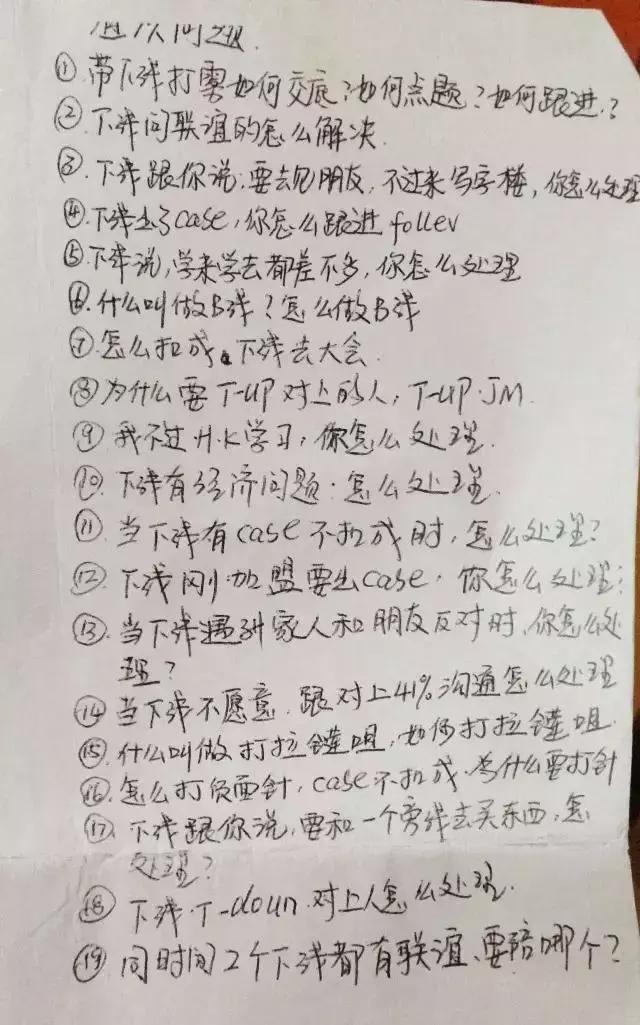 ①.带下线打雾如何交底?如何点题?如何跟进.?
②.下线问联谊的怎么解决.
③.下线跟你说:要去见朋友,不过来写字楼,你怎么处理
④.下线出了case,你怎么跟进 follev
⑤.下线说,学来学去都差不多,你怎么处理
⑥.什么叫做B线?怎么做B线
⑦.怎么扣成 下线去大会.
⑧为什么要T-UP对上的人,T-UP.JM.
⑨.我不过H.K学习,你怎么处理.
⑩.下线有经济问题:怎么处理.
⑪.当下线有case不扣成时,怎么处理?
⑫.下线刚加盟要出case.你怎么处理?
⑬.当下线遇到家人和朋友反对时,你怎么处
理?
⑭当下线不愿意.跟对上41%沟通怎么处理
⑮.什么叫做打拉链咀,如何打拉链咀.
⑯.怎么打负面针,case不扣成.为什么要打针
⑰.下线跟你说,要和一个旁线去买东西,怎
处理?
⑱.下线.T-doun.对上人怎么处理.
⑲同时间2个下线都有联谊、要陪哪个?